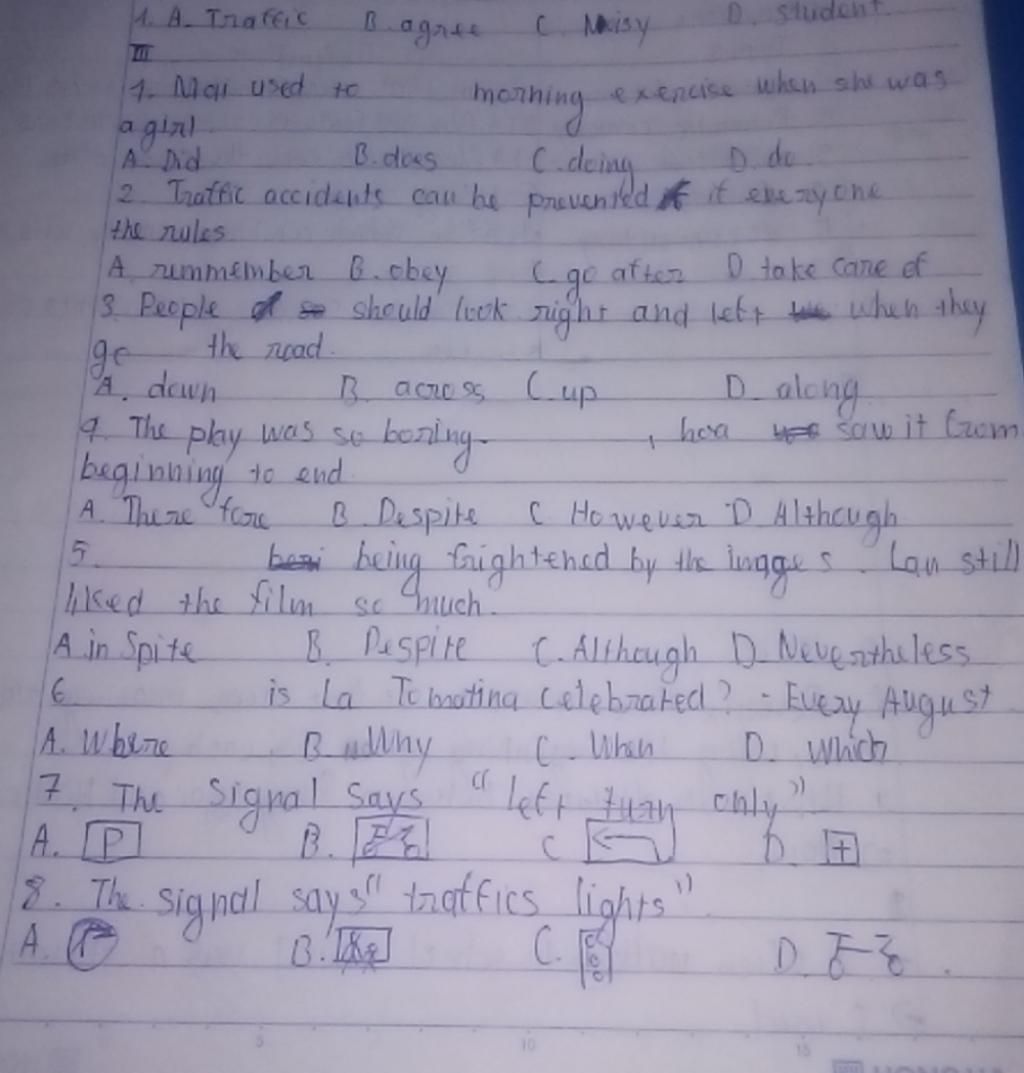 1. A. Traffic B. agree C. Noisy D. student
III
1. Mai used to morning exercise when she was
a girl
A. Did B. does C. doing D. do
2. Traffic accidents can be prevented if everyone
the rules
A. rummember B. obey C. go after D. take care of
3. People should look right and left when they
go the road.
A. down B. across C. up D. along
4. The play was so boring. , hoa saw it from
beginning to end.
A. There fore B. Despite C. However D. Although
5. being frightened by the images. Lan still
liked the film so much.
A in Spite B. Despite C. Although D. Nevertheless
6 is La Tomatina celebrated? - Every August
A. Where B. Why C. When D. Which
7. The Signal says "left turn only"
A. P B. C D. +
8. The signal says "traffics lights"
A. B. C. D.
5 10 15